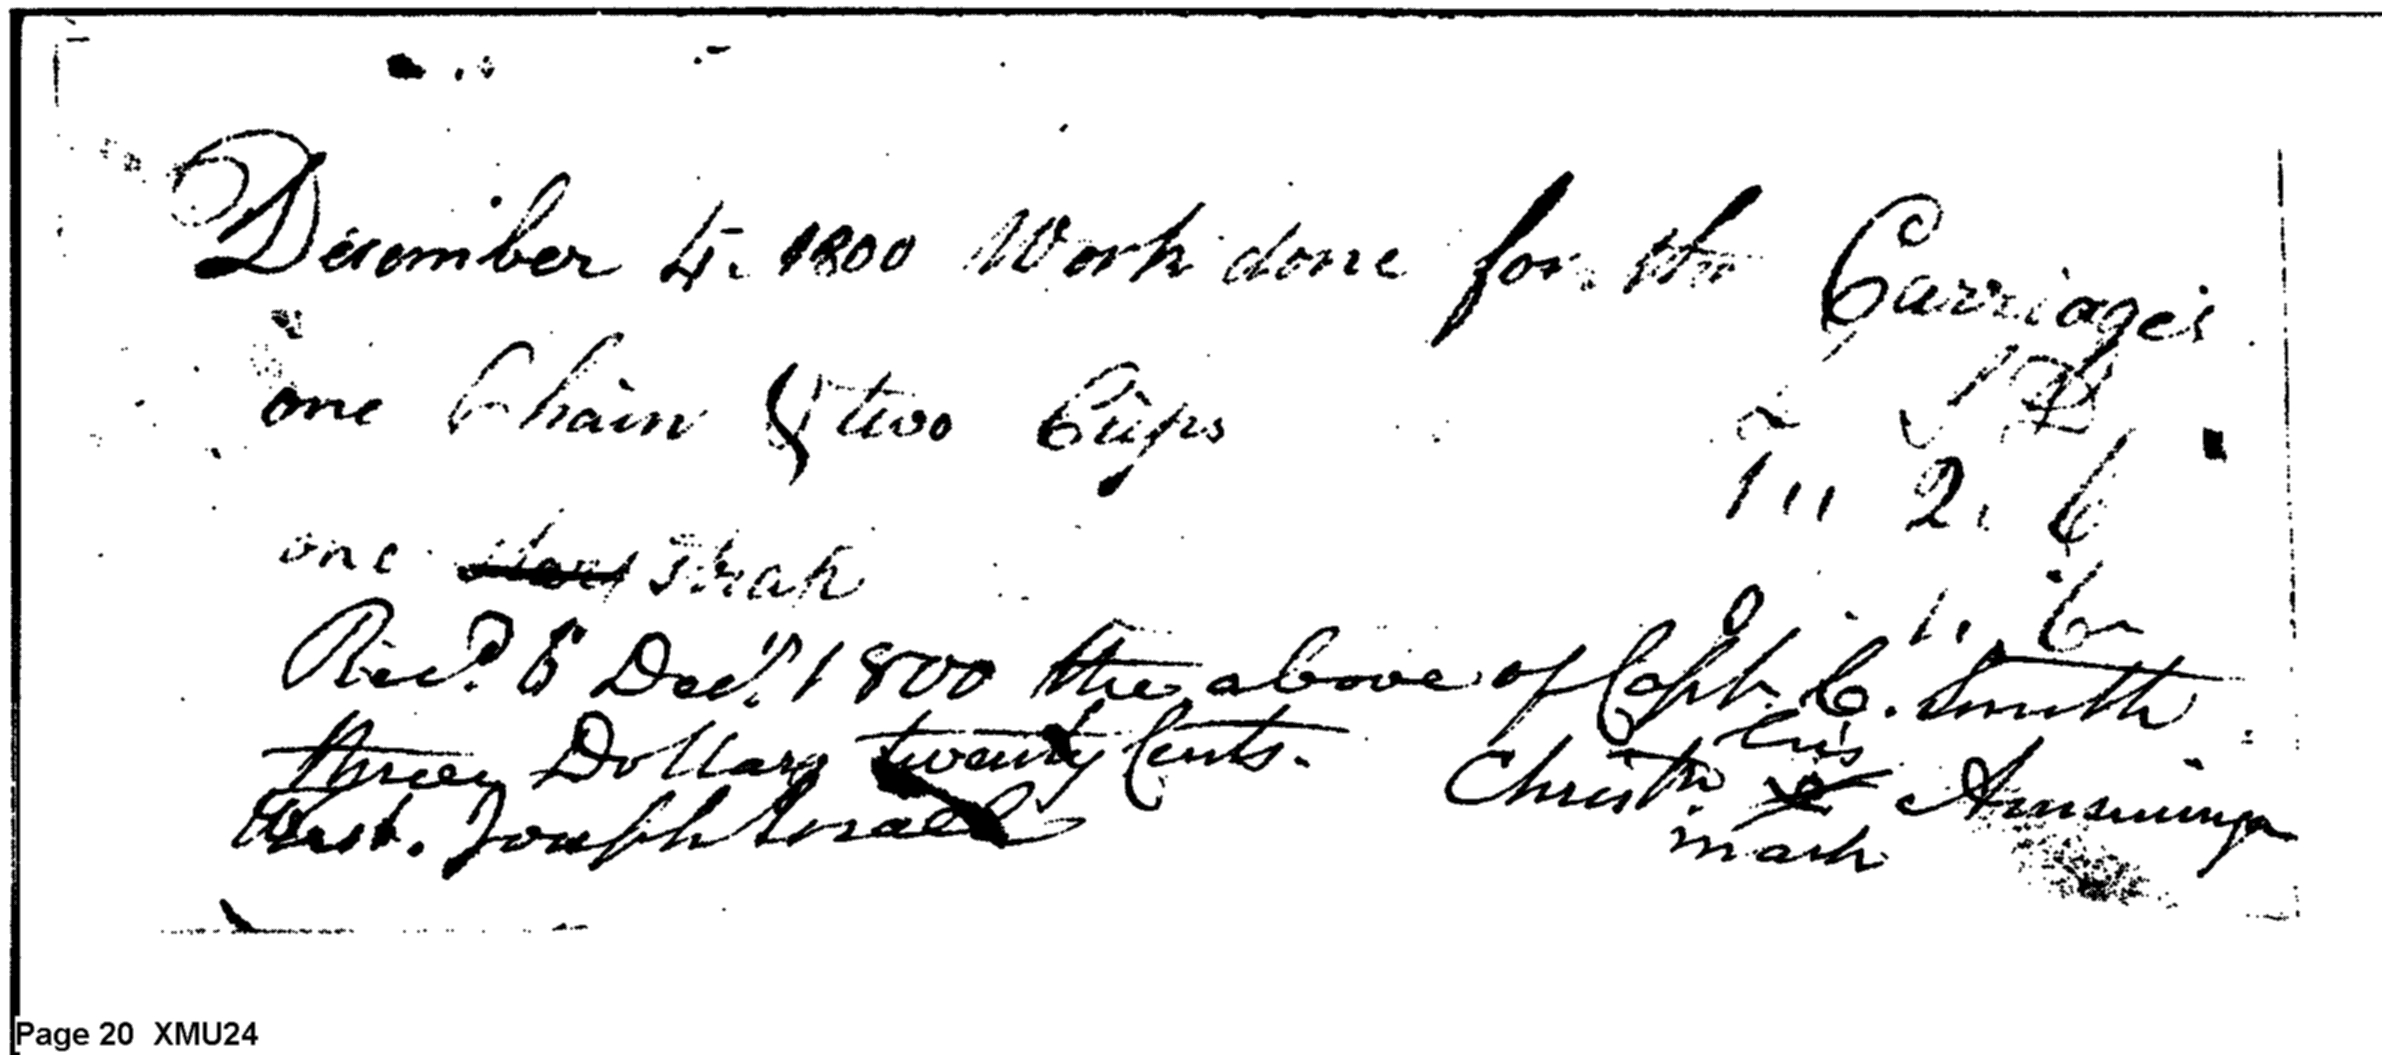 December 4. 1800 Work done for the Carriages
one Chain & two Cups
1 " 2. 6
one Strap
1. 6
Recd. 6 Decr. 1800 the above of Capt. C. Smith
three Dollars twenty Cents.
his
Test. Joseph Christn. X
mark
Page 20 XMU24